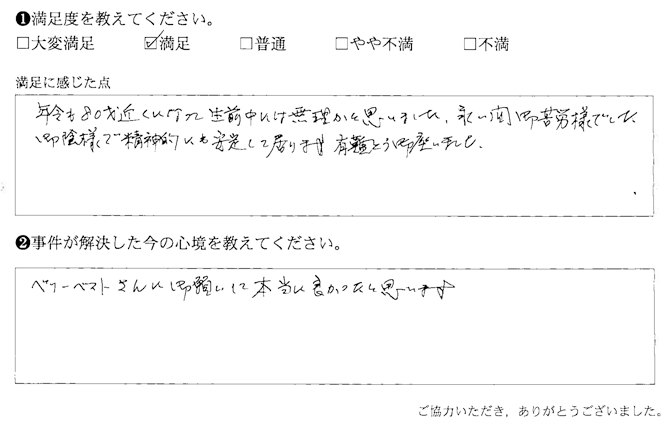 ❶満足度を教えてください。
□大変満足 ☑満足 □普通 □やや不満 □不満
満足に感じた点
年令も80才近くになって生前中には無理かと思いました、永い間御苦労様でした
御陰様で精神的にも安定して居ります有難とう御座いました.
❷事件が解決した今の心境を教えてください。
ベリーベストさんに御願いして本当に良かったと思います
ご協力いただき，ありがとうございました。